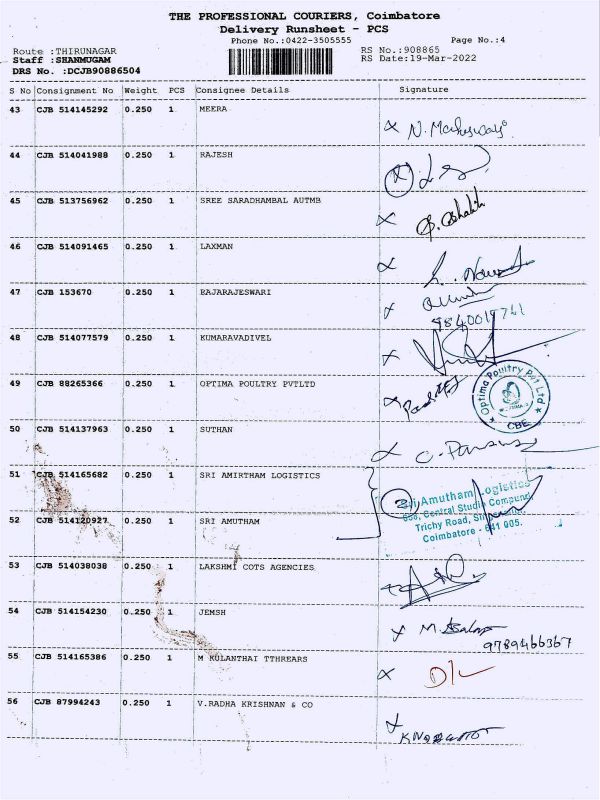 THE PROFESSIONAL COURIERS, Coimbatore
Delivery Runsheet - PCS
Phone No.:0422-3505555
Page No.:4
Route :THIRUNAGAR
RS No.:908865
Staff :SHANMUGAM
RS Date:19-Mar-2022
DRS No. :DCJB90886504
S No Consignment No Weight PCS Consignee Details Signature
43 CJB 514145292 0.250 1 MEERA
44 CJB 514041988 0.250 1 RAJESH
45 CJB 513756962 0.250 1 SREE SARADHAMBAL AUTMB
46 CJB 514091465 0.250 1 LAXMAN
47 CJB 153670 0.250 1 RAJARAJESWARI
48 CJB 514077579 0.250 1 KUMARAVADIVEL
49 CJB 88265366 0.250 1 OPTIMA POULTRY PVTLTD
Optima Poultry Pvt Ltd
CBE
50 CJB 514137963 0.250 1 SUTHAN
51 CJB 514165682 0.250 1 SRI AMIRTHAM LOGISTICS
Sri Amutham Logistics
Central Studio Compund
52 CJB 514120927 0.250 1 SRI AMUTHAM
Trichy Road,
Coimbatore - 641 005.
53 CJB 514038038 0.250 1 LAKSHMI COTS AGENCIES
54 CJB 514154230 0.250 1 JEMSH
9789466367
55 CJB 514165386 0.250 1 M KULANTHAI TTHREARS
56 CJB 87994243 0.250 1 V.RADHA KRISHNAN & CO